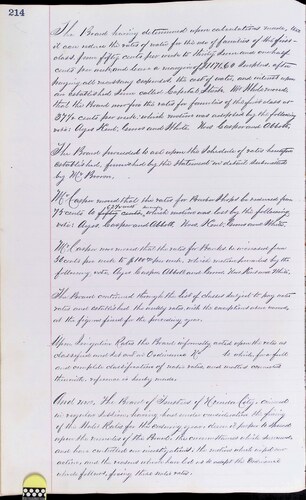 214
The Board having determined upon calculations made, that
it can reduce the rates of water for the use of families of the first
class from fifty cents per week to thirty seven and one half
cents per week and leave a margin of surplus, after
paying all necessary expenses, the cost of water, and interest upon
an established sum called Capital Stock. Mr White moved
that the Board now fix the rate for families of the first class at
37½ cents per week. which motion was adopted by the following
vote: Ayes Kent, and White. Noes Casper and Abbott.
The Board proceeded to act upon the Schedule of rates heretofore
established, furnished by the in detail submitted
by Mr
Mr Casper moved that the rates for Barber Shops be reduced from
75 cents to which motion was lost by the following
vote: Ayes Casper and Abbott. Noes Kent, and White.
Mr Casper now moved that the rates for Banks be increased from
50 cents per week to $1.00 per week. which motion prevailed by the
following vote, Ayes Casper Abbott and Noes Kent and White.
The Board continued through the list of classes subject to pay water
rates and established the weekly rates with the exceptions above named
at the figures fixed for the previous year.
Upon Irrigation Rates the Board informally acted upon the rates as
classified and set out in Ordinance No to which for a full
and complete classification of water rates and matters connected
therewith reference is hereby made.
And now, The Board of Trustees of City, convened
in regular session, having had under consideration the fixing
of the Water Rates for the ensuing year, deem it proper to spread
upon the minutes of the Board, the circumstances which surround
and have controlled our investigations, the motives which impel our
action, and the reasons which have led us to adopt the Ordinance
which follows, fixing these water rates.